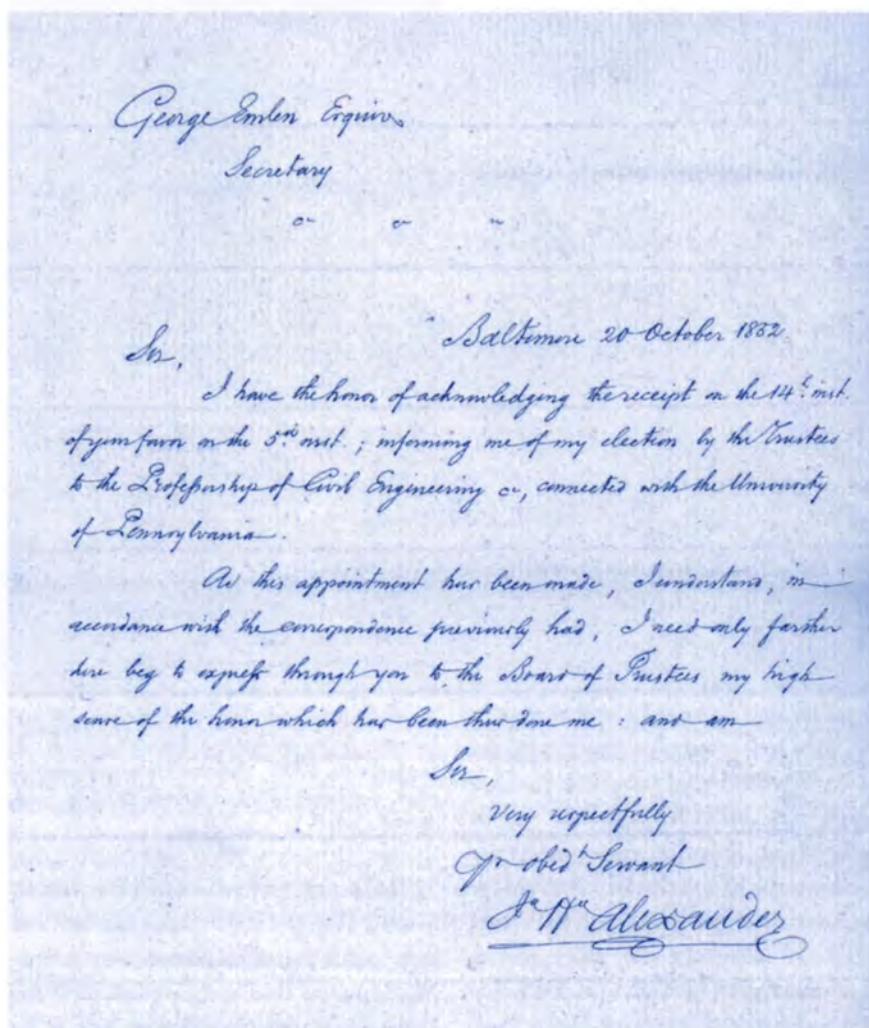 George Emlen Esquire
Secretary
&c &c &c
Baltimore 20 October 1852
Sir,
I have the honor of acknowledging the receipt on the 14th inst.
of your favor on the 5th inst.; informing me of my election by the Trustees
to the Professorship of Civil Engineering &c, connected with the University
of Pennsylvania.
As this appointment has been made, I understand, in
accordance with the correspondence previously had, I need only farther
here beg to express through you to the Board of Trustees my high
sense of the honor which has been thus done me: and am
Sir,
Very respectfully
Yr obedt Servant
Jn Hy Alexander